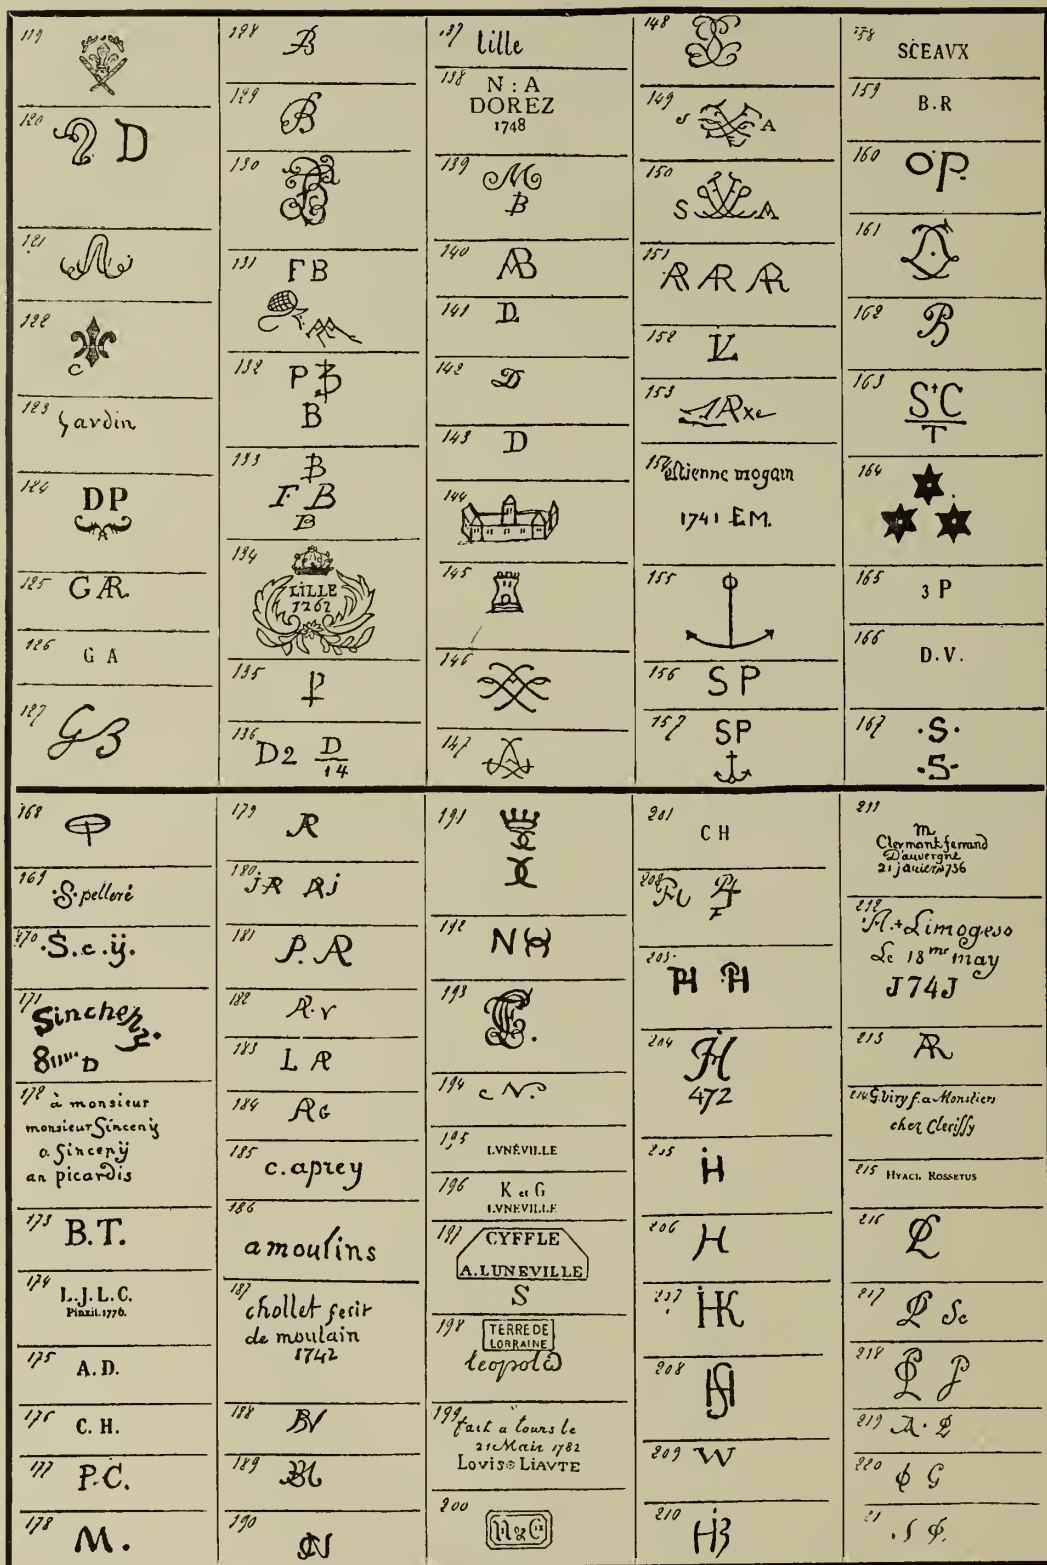 119
120
D
121
122
C
123
Jardin
124
DP
A
125
G AR
126
G A
127
GB
128
B
129
B
130
131
F B
132
P B
B
133
B
F B
B
134
LILLE
1767
135
P
136
D2 D
14
137
Lille
138
N : A
DOREZ
1748
139
M
B
140
AB
141
D.
142
D
143
D
144
145
146
147
148
149
S A
150
S A
151
AR AR AR
152
153
154
estienne mogain
1741 E.M.
155
156
S P
157
SP
158
SCEAVX
159
B.R
160
O P.
161
162
163
S+C
T
164
165
3 P
166
D.V.
167
·S·
·S·
168
169
·S· pelleré
170
·S.c.ÿ.
171
Sinchenz.
D
172
à monsieur
monsieur Sincenij
a Sincenÿ
an picardis
173
B.T.
174
L.J.L.C.
Pinxit.1776.
175
A.D.
176
C. H.
177
P.C.
178
M.
179
AR
180
JR Rj
181
P. AR
182
AR. v
183
L AR
184
AR G
185
c. aprey
186
a moulins
187
chollet fecit
de moulain
1742
188
189
190
191
192
N
193
194
c N.
195
LVNÉVILLE
196
K et G
LVNEVILLE
197
CYFFLE
A. LUNEVILLE
S
198
TERRE DE
LORRAINE
leopold
199
fait a tours le
21 Mair 1782
LOVIS LIAVTE
200
201
C H
202
203
PH PH
204
472
205
H
206
H
207
HK
208
209
W
210
HB
211
m
Clermont ferrand
D'auvergne
21 janier 1736
212
A. + Limogeso
Le 18me may
J74J
213
AR
214
G. Viry f. a Monstiers
chez Clerissy
215
HYACI. ROSSETUS
216
217
Sc
218
219
A.
220
G
21